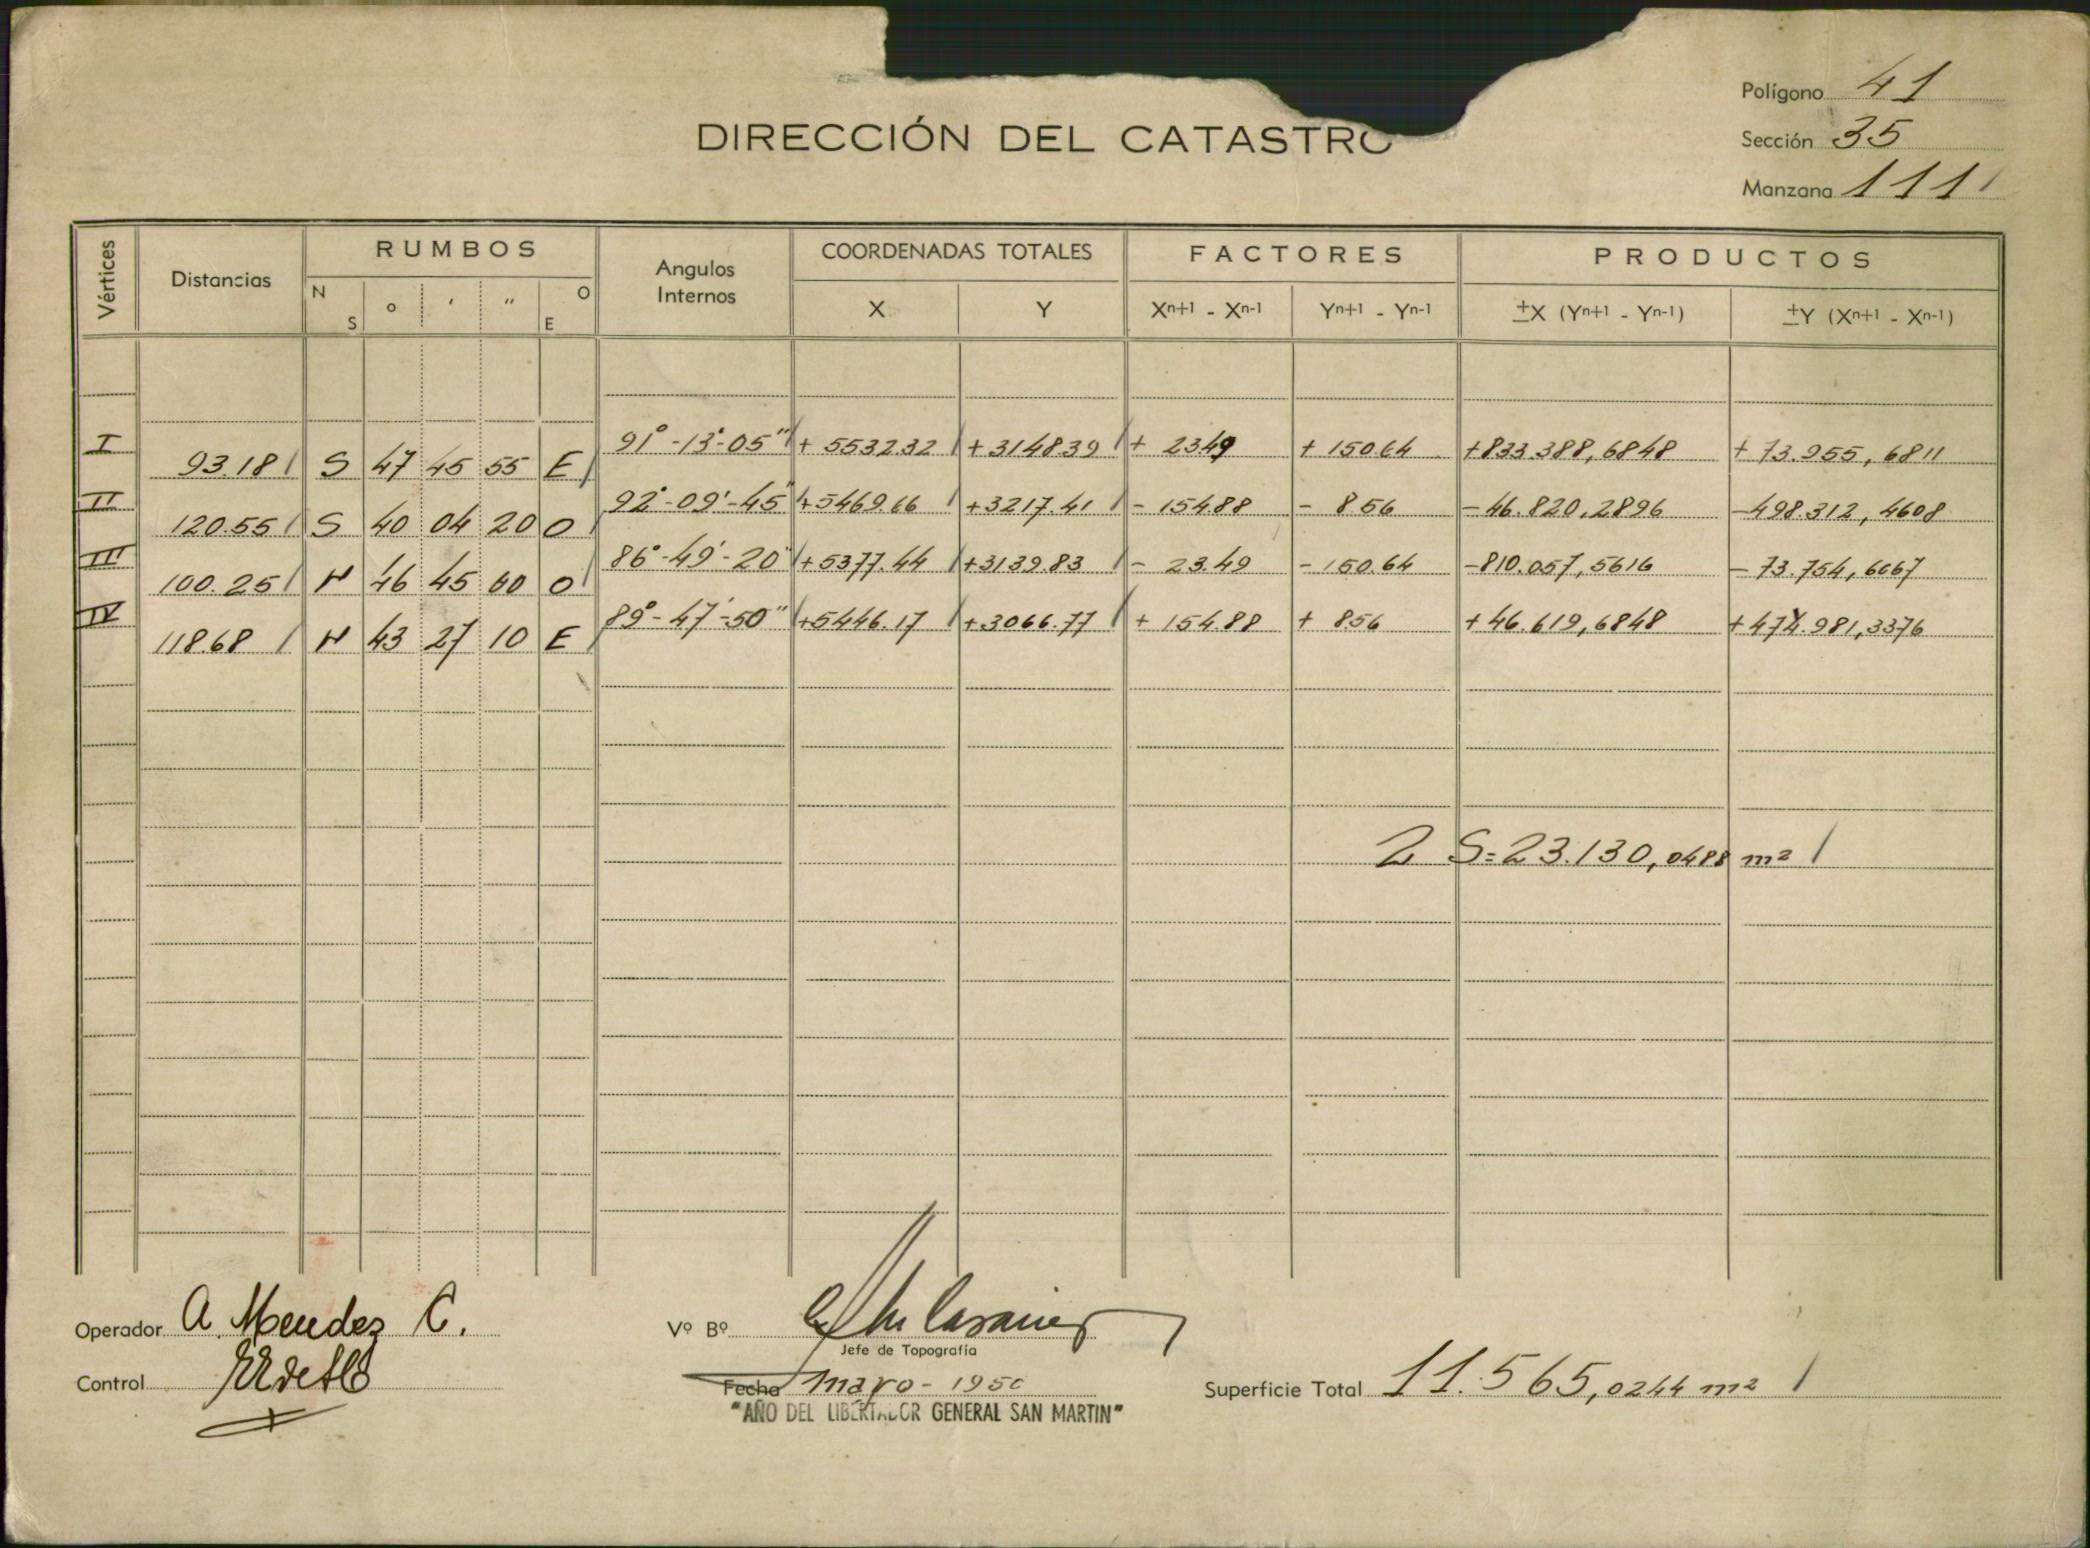 Polígono 41
DIRECCIÓN DEL CATASTRO
Sección 35
Manzana 111
Vértices Distancias RUMBOS Angulos Internos COORDENADAS TOTALES FACTORES PRODUCTOS
N S ° ' " O E X Y Xn+1 - Xn-1 Yn+1 - Yn-1 ±X (Yn+1 - Yn-1) ±Y (Xn+1 - Xn-1)
I 93.18 S 47 45 55 E 91°-13'-05" + 5532.32 + 3148.39 + 23.49 + 150.64 +833.388,6848 + 73.955,6811
II 120.55 S 40 04 20 O 92°-09'-45" +5469.66 +3217.41 - 154.88 - 8.56 -46.820,2896 -498.312,4608
III 100.25 N 46 45 00 O 86°-49'-20" +5377.44 +3139.83 - 23.49 - 150.64 -810.057,5616 - 73.754,6067
IV 118.68 N 43 27 10 E 89°-47'-50" +5446.17 +3066.77 + 154.88 + 8.56 +46.619,6848 +474.981,3376
2 S=23.130,0488 m²
Operador A. Mendez C.
Vº Bº
Jefe de Topografía
Control
Fecha mayo - 1950
Superficie Total 11.565,0244 m²
"AÑO DEL LIBERTADOR GENERAL SAN MARTIN"